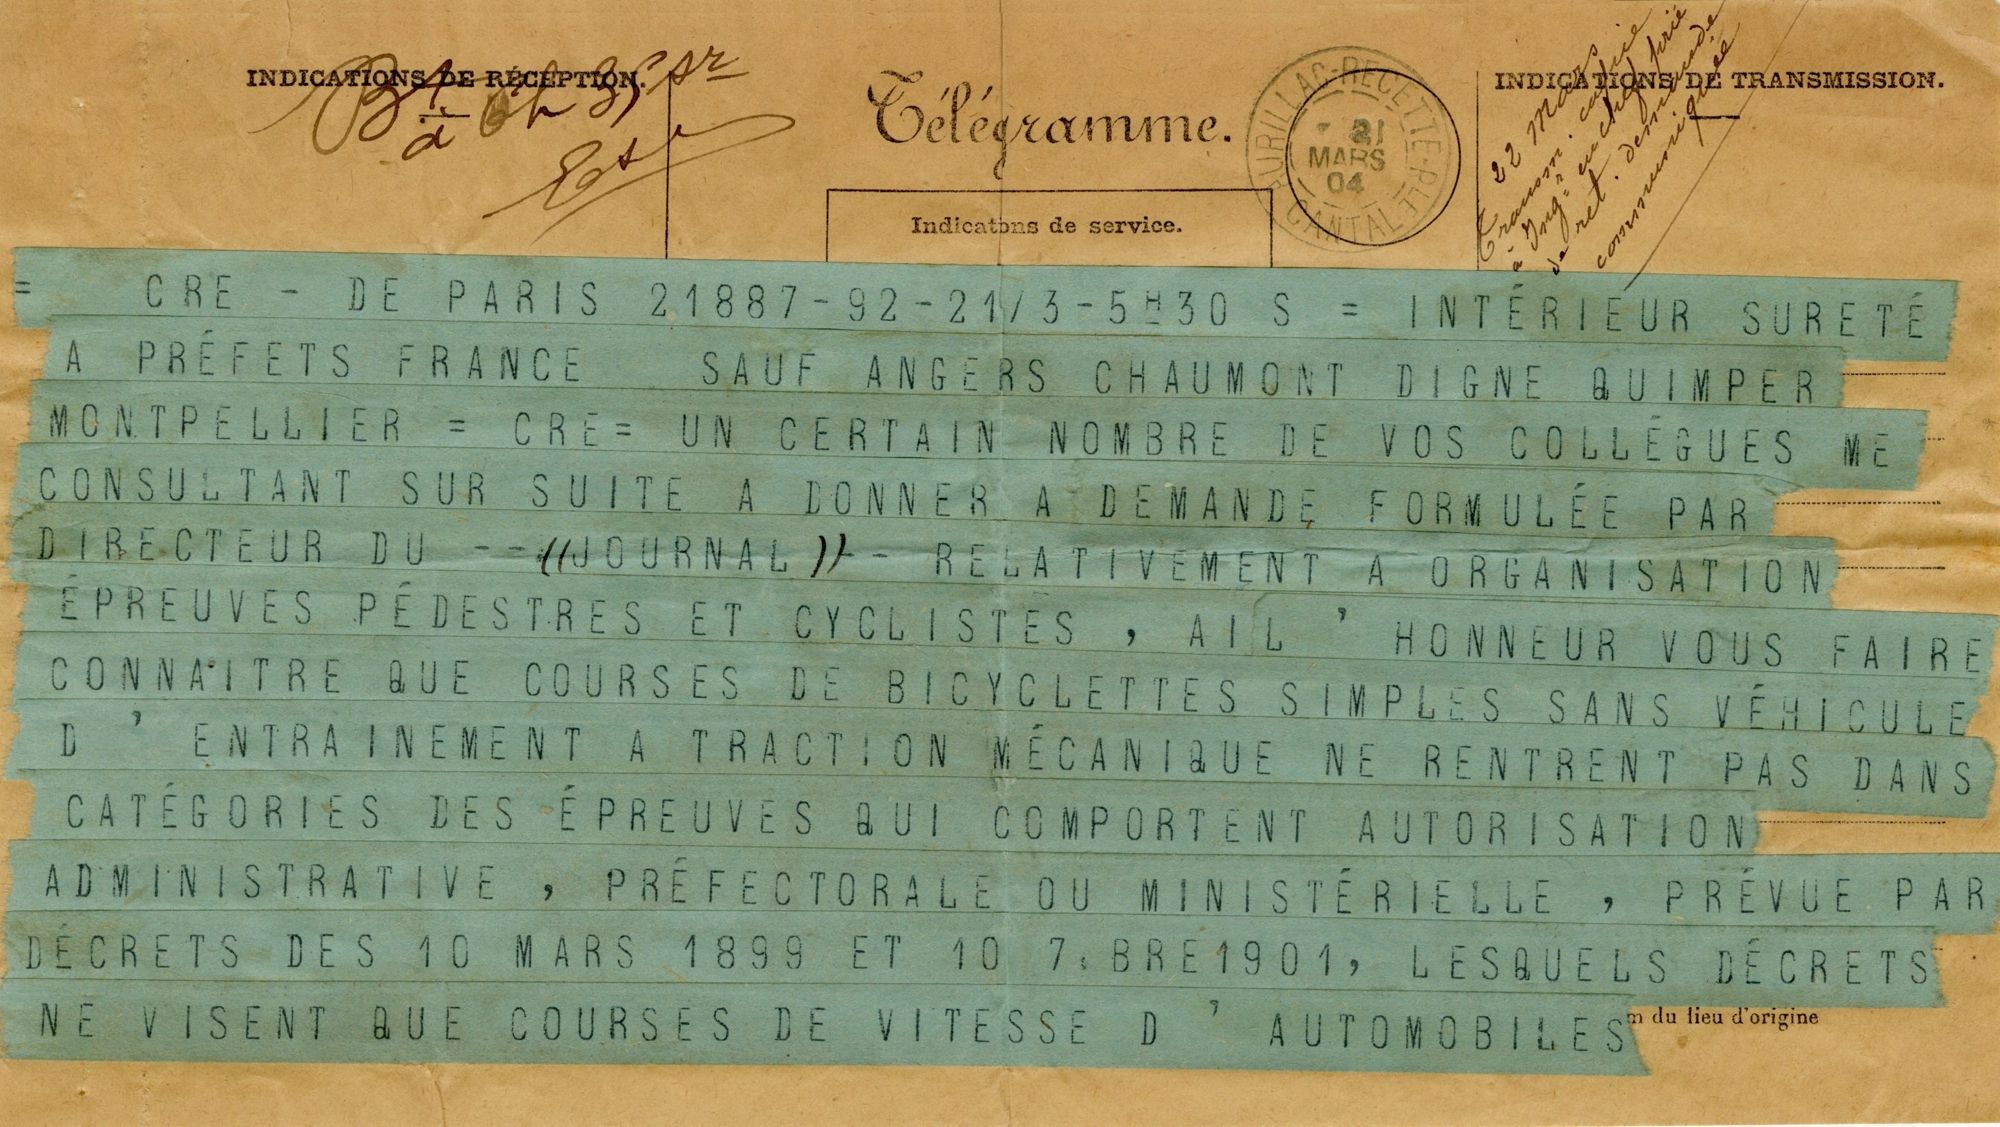 INDICATIONS DE RÉCEPTION.
à 6h 35 sr
Télégramme.
AURILLAC-RECETTE-PLE
21
MARS
04
CANTAL
INDICATIONS DE TRANSMISSION.
22 Mars
Transm. copie
à Ingr en chef prié
de ret. demande
communiquée
Indications de service.
= CRE - DE PARIS 21887-92-21/3-5H30 S = INTÉRIEUR SURETÉ
A PRÉFETS FRANCE SAUF ANGERS CHAUMONT DIGNE QUIMPER
MONTPELLIER = CRE= UN CERTAIN NOMBRE DE VOS COLLÉGUES ME
CONSULTANT SUR SUITE A DONNER A DEMANDE FORMULÉE PAR
DIRECTEUR DU --((JOURNAL))-- RELATIVEMENT A ORGANISATION
ÉPREUVES PÉDESTRES ET CYCLISTES , AIL ' HONNEUR VOUS FAIRE
CONNAITRE QUE COURSES DE BICYCLETTES SIMPLES SANS VÉHICULE
D ' ENTRAINEMENT A TRACTION MÉCANIQUE NE RENTRENT PAS DANS
CATÉGORIES DES ÉPREUVES QUI COMPORTENT AUTORISATION
ADMINISTRATIVE , PRÉFECTORALE OU MINISTÉRIELLE , PRÉVUE PAR
DÉCRETS DES 10 MARS 1899 ET 10 7.BRE1901, LESQUELS DÉCRETS
NE VISENT QUE COURSES DE VITESSE D ' AUTOMOBILES
m du lieu d'origine